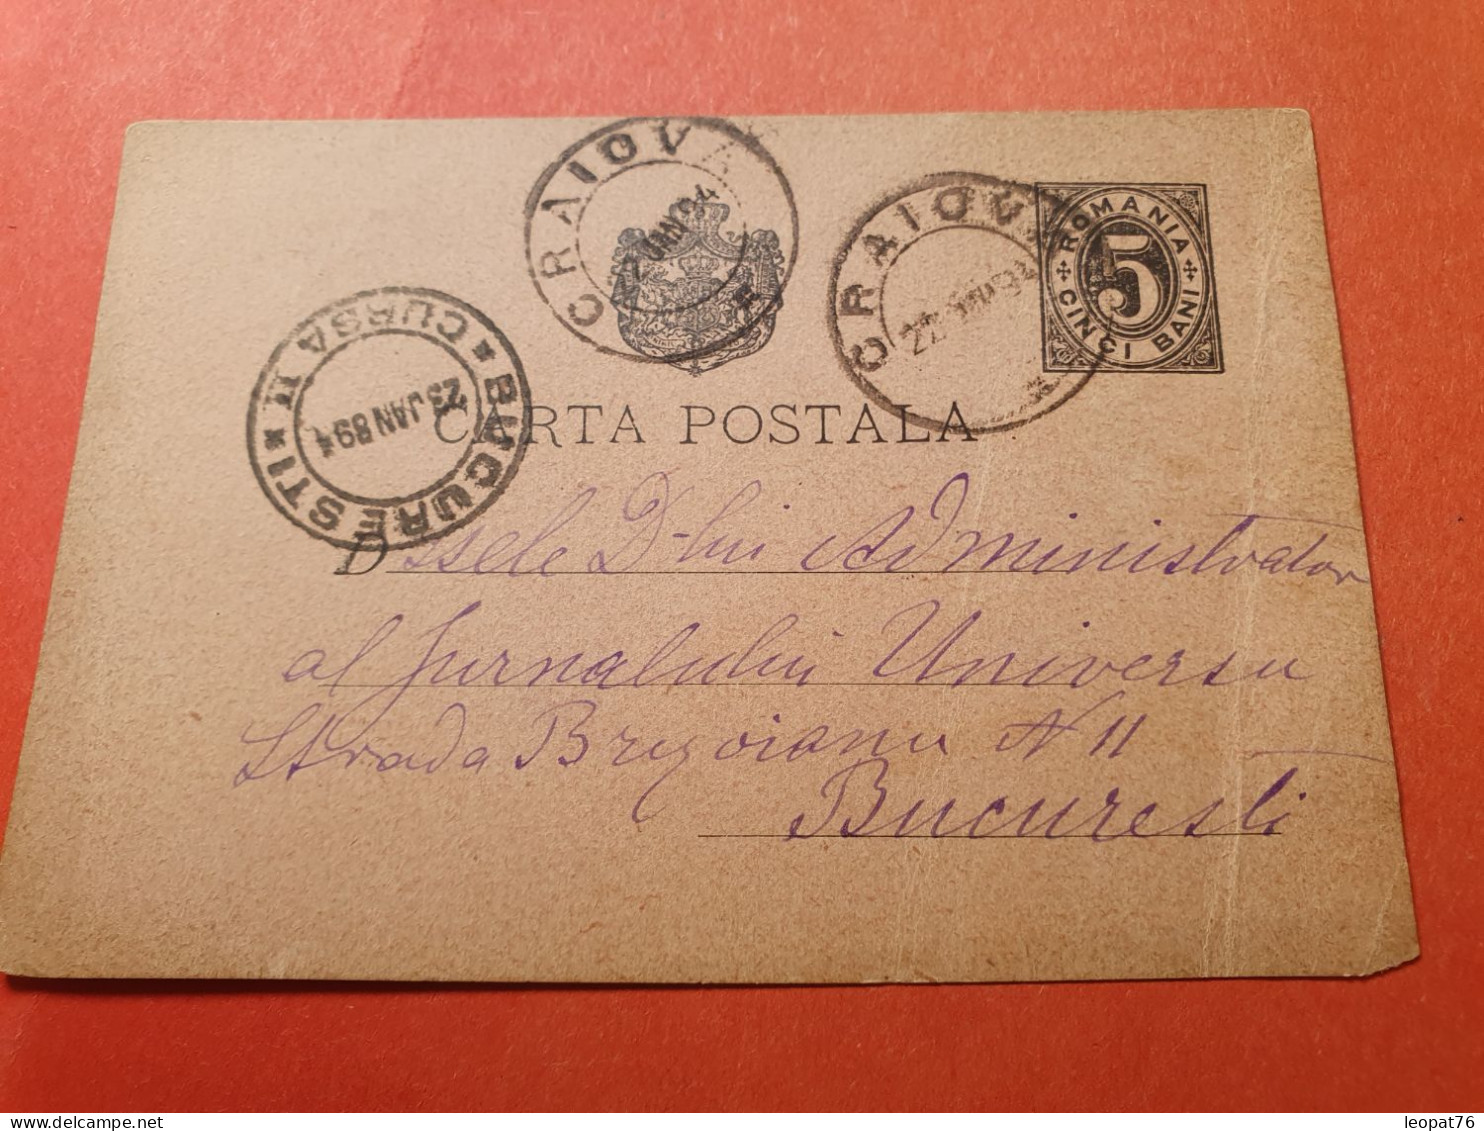 CRAIOVA
22 JAN 94
CRAIOVA
22 JAN 94
ROMANIA
5
CINCI BANI
BUCURESTI
CURSA II
23 JAN 894
CARTA POSTALA
D-sale D-lui Administrator
al Jurnalului Universu
Strada Brezoianu N 11
Bucuresti
leopat76